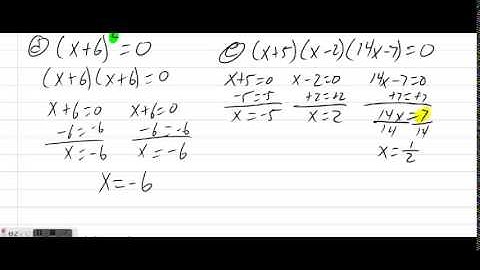 d) (x+6)² = 0
(x+6)(x+6) = 0
x+6=0 x+6=0
-6=-6 -6=-6
x=-6 x=-6
x=-6
e) (x+5)(x-2)(14x-7)=0
x+5=0 x-2=0 14x-7=0
-5=-5 +2=+2 +7=+7
x=-5 x=2 14x=7
14 14
x=1/2